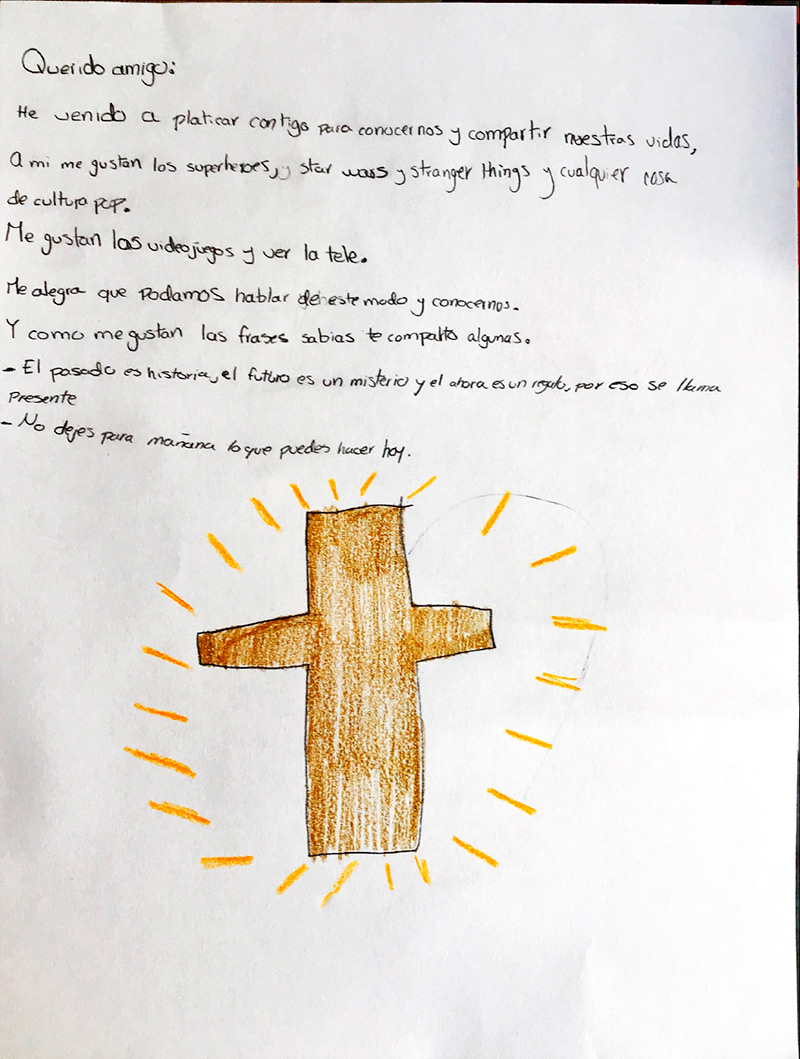 Querido amigo:
He venido a platicar contigo para conocernos y compartir nuestras vidas,
A mi me gustan los superheroes, y star wars y stranger things y cualquier cosa
de cultura pop.
Me gustan los videojuegos y ver la tele.
Me alegra que podamos hablar de este modo y conocernos.
Y como me gustan las frases sabias te comparto algunas.
- El pasado es historia, el futuro es un misterio y el ahora es un regalo, por eso se llama
Presente
- No dejes para mañana lo que puedes hacer hoy.